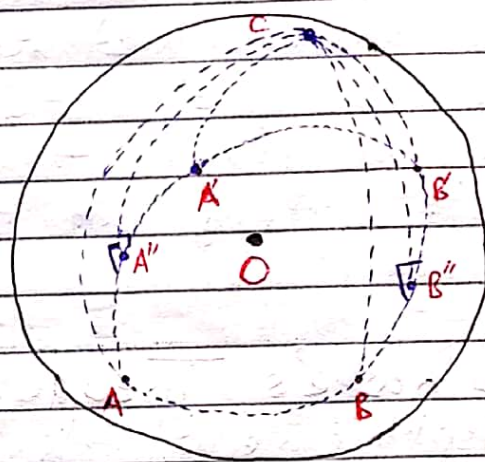 C
A'
B'
A"
O
B"
A
B